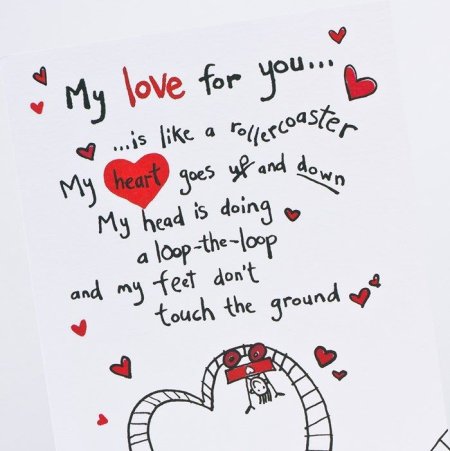 My love for you...
...is like a rollercoaster
My heart goes up and down
My head is doing
a loop-the-loop
and my feet don't
touch the ground